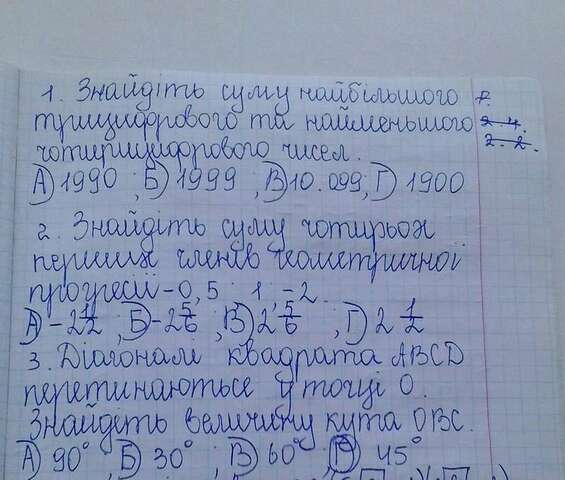 1. Знайдіть суму найбільшого
трицифрового та найменьшого
чотирицифрового чисел.
А) 1990 ; Б) 1999 ; В) 10.099; Г) 1900
2. Знайдіть суму чотирьох
перших членів геометричної
прогресії -0,5 ; 1 ; -2 ...
А) -2 1/2 ; Б) -2 5/6 ; В) 2 5/6 ; Г) 2 1/2
3. Діагоналі квадрата ABCD
перетинаютьсе у точці О.
Знайдіть величину кута ОВС.
А) 90° ; Б) 30° ; В) 60° ; Г) 45°